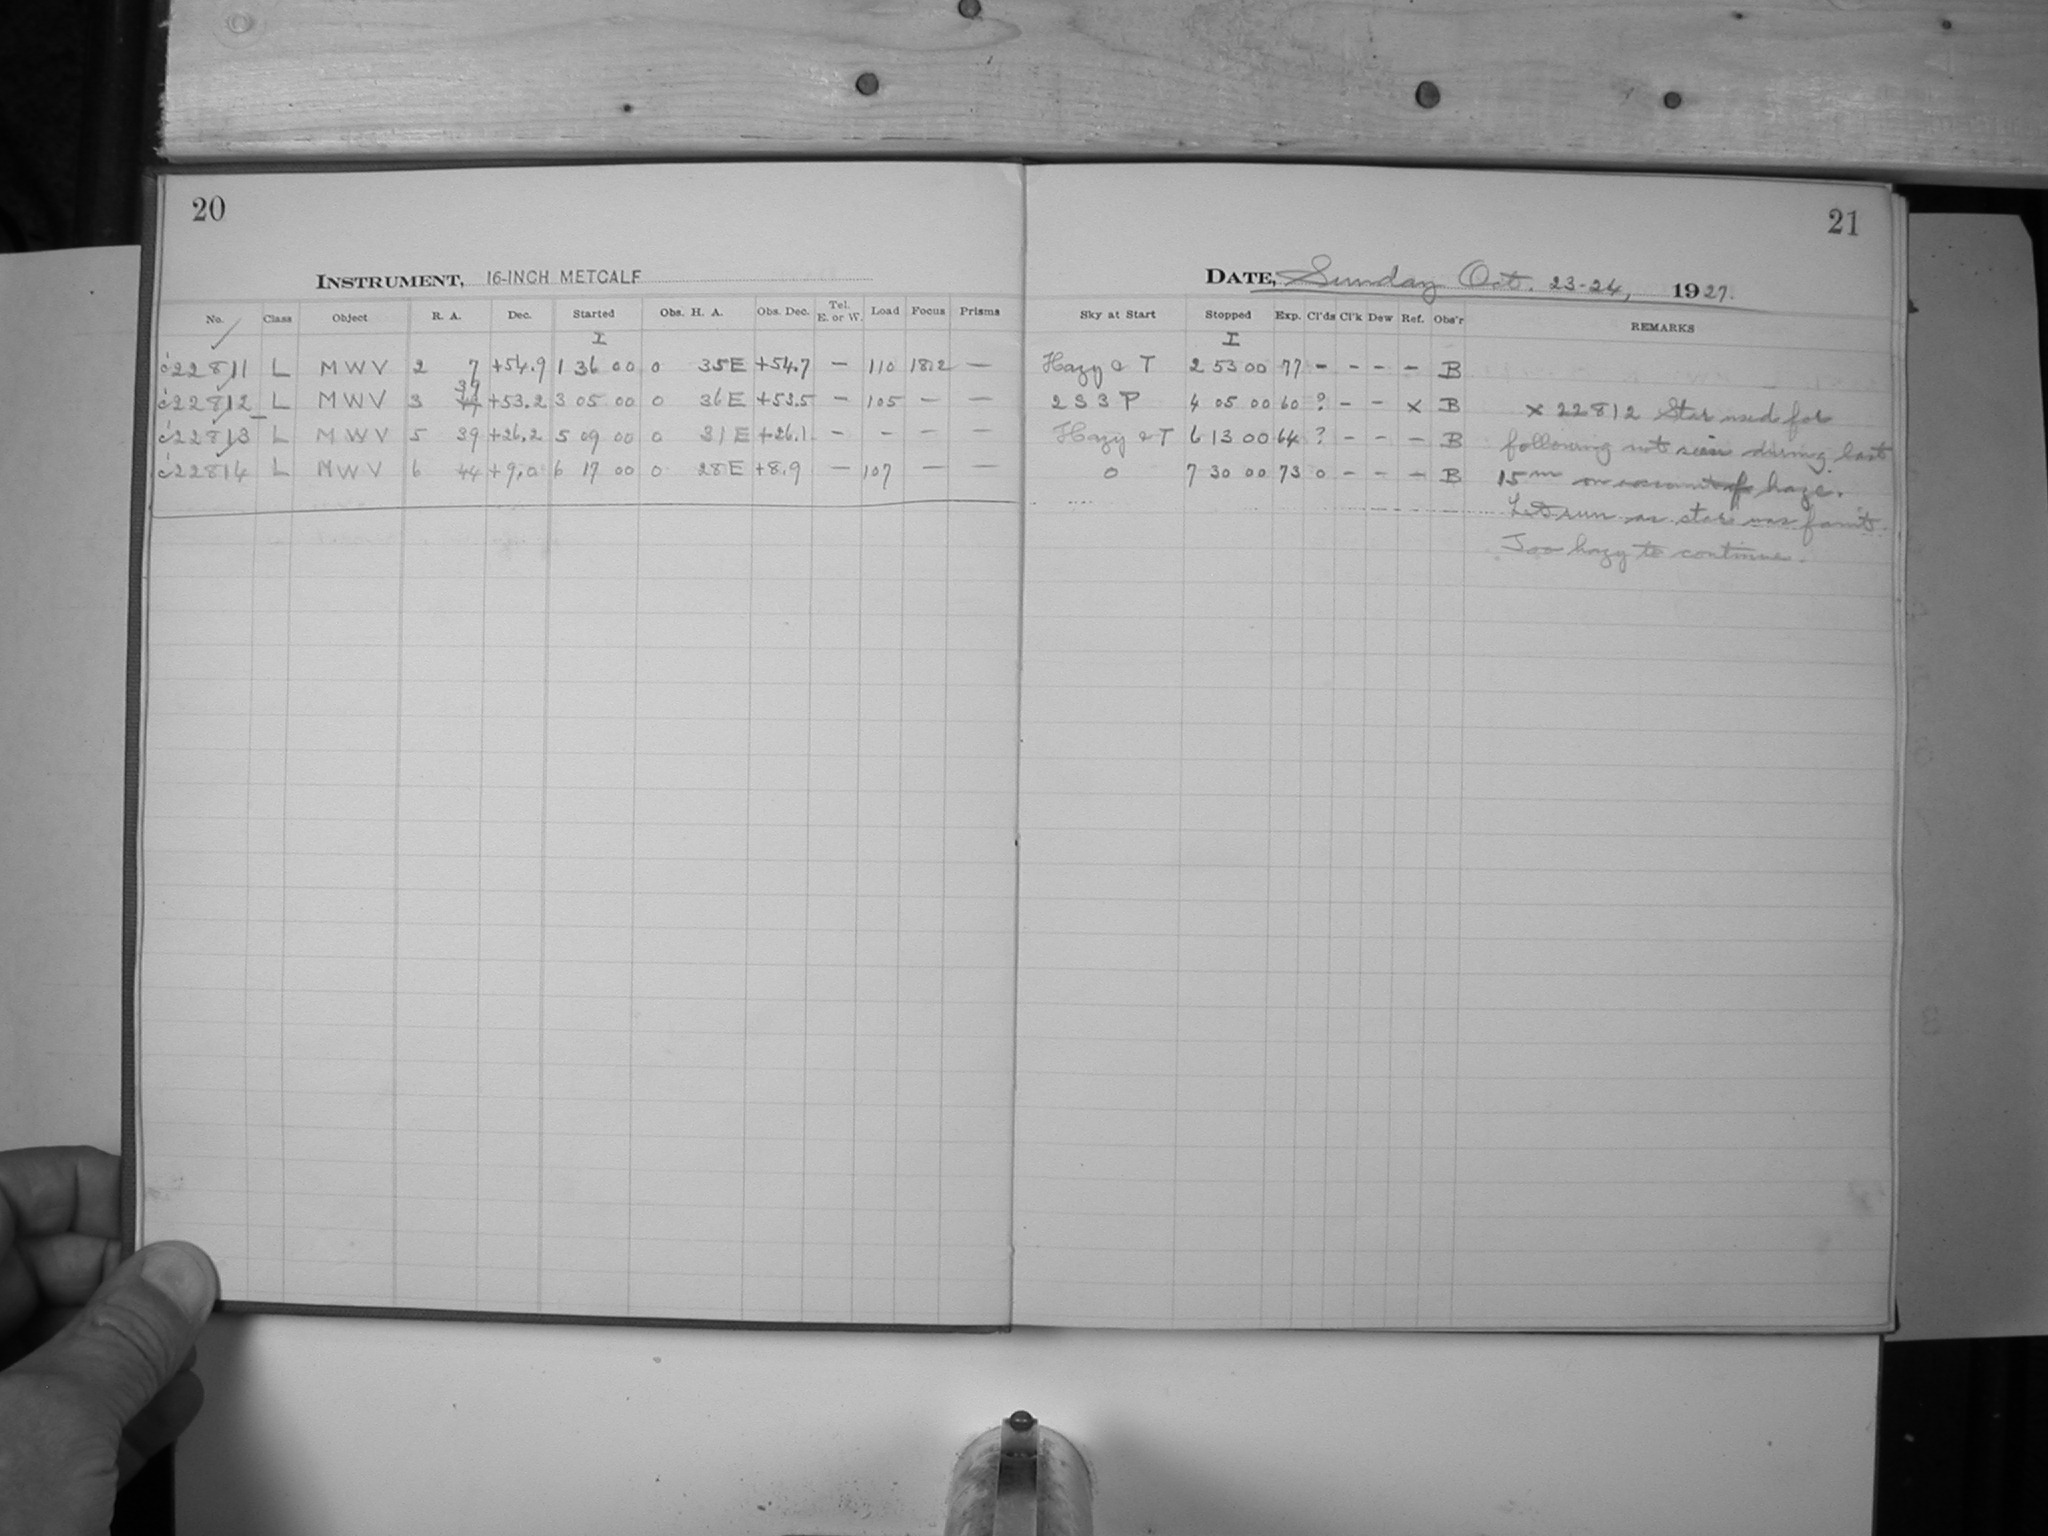 20
INSTRUMENT, 16-INCH METCALF
No. Class Object R. A. Dec. Started Obs. H. A. Obs. Dec. Tel. E. or W. Load Focus Prisms
I
22811 L MWV 2 7 +54.9 1 36 00 0 35E +54.7 — 110 182 —
22812 L MWV 3 39 +53.2 3 05 00 0 36E +53.5 — 105 — —
22813 L MWV 5 39 +26.2 5 09 00 0 31E +26.1 — — — —
22814 L MWV 6 44 +9.0 6 17 00 0 28E +8.9 — 107 — —
21
DATE, Sunday Oct. 23-24, 1927.
Sky at Start Stopped Exp. Cl'ds Cl'k Dew Ref. Obs'r REMARKS
I
Hazy & T 2 53 00 77 - - - - B
2 S 3 P 4 05 00 60 ? - - x B
Hazy & T 6 13 00 64 ? - - - B
0 7 30 00 73 0 - - - B
x 22812 Star used for
following not seen during last
15m on account of haze.
Let run as star was faint.
Too hazy to continue.